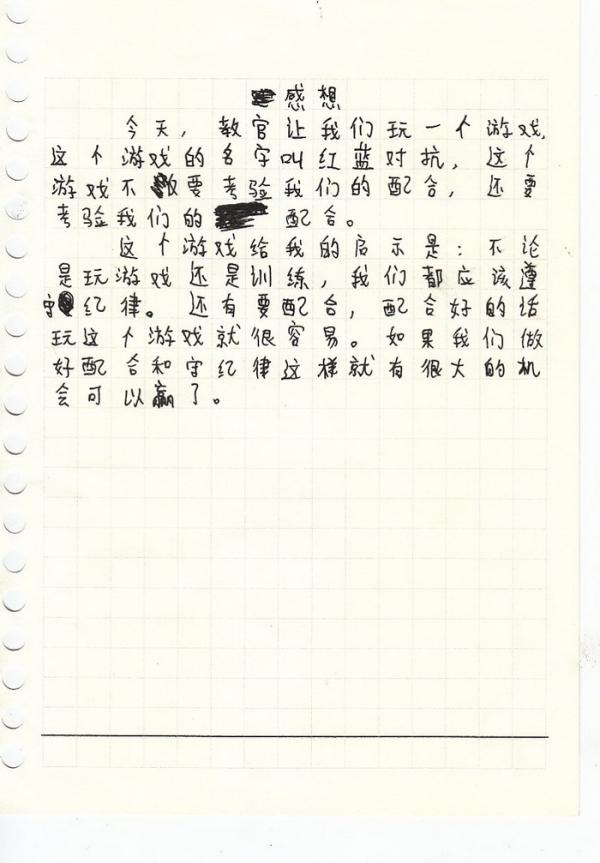 感想
今天，教官让我们玩一个游戏，
这个游戏的名字叫红蓝对抗，这个
游戏不要考验我们的配合，还要
考验我们的配合。
这个游戏给我的启示是：不论
是玩游戏还是训练，我们都应该遵
守纪律。还有要配合，配合好的话
玩这个游戏就很容易。如果我们做
好配合和守纪律这样就有很大的机
会可以赢了。